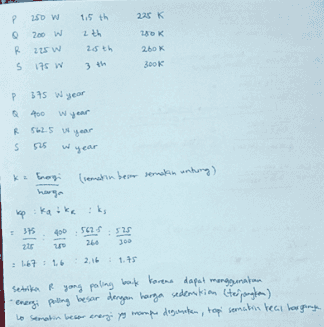 P 250 W 1,5 th 225 K
Q 200 W 2 th 250 K
R 225 W 2,5 th 260 K
S 175 W 3 th 300 K
P 375 W year
Q 400 W year
R 562.5 W year
S 525 W year
k = Energi (semakin besar semakin untung)
harga
kp : kQ : kR : ks
= 375 : 400 : 562.5 : 525
225 250 260 300
= 1.67 : 1,6 : 2,16 : 1.75
Setrika R yang paling baik karena dapat menggunakan
energi paling besar dengan harga sedemikian (terjangkau)
Lo semakin besar energi yg mampu digunakan, tapi semakin kecil harganya